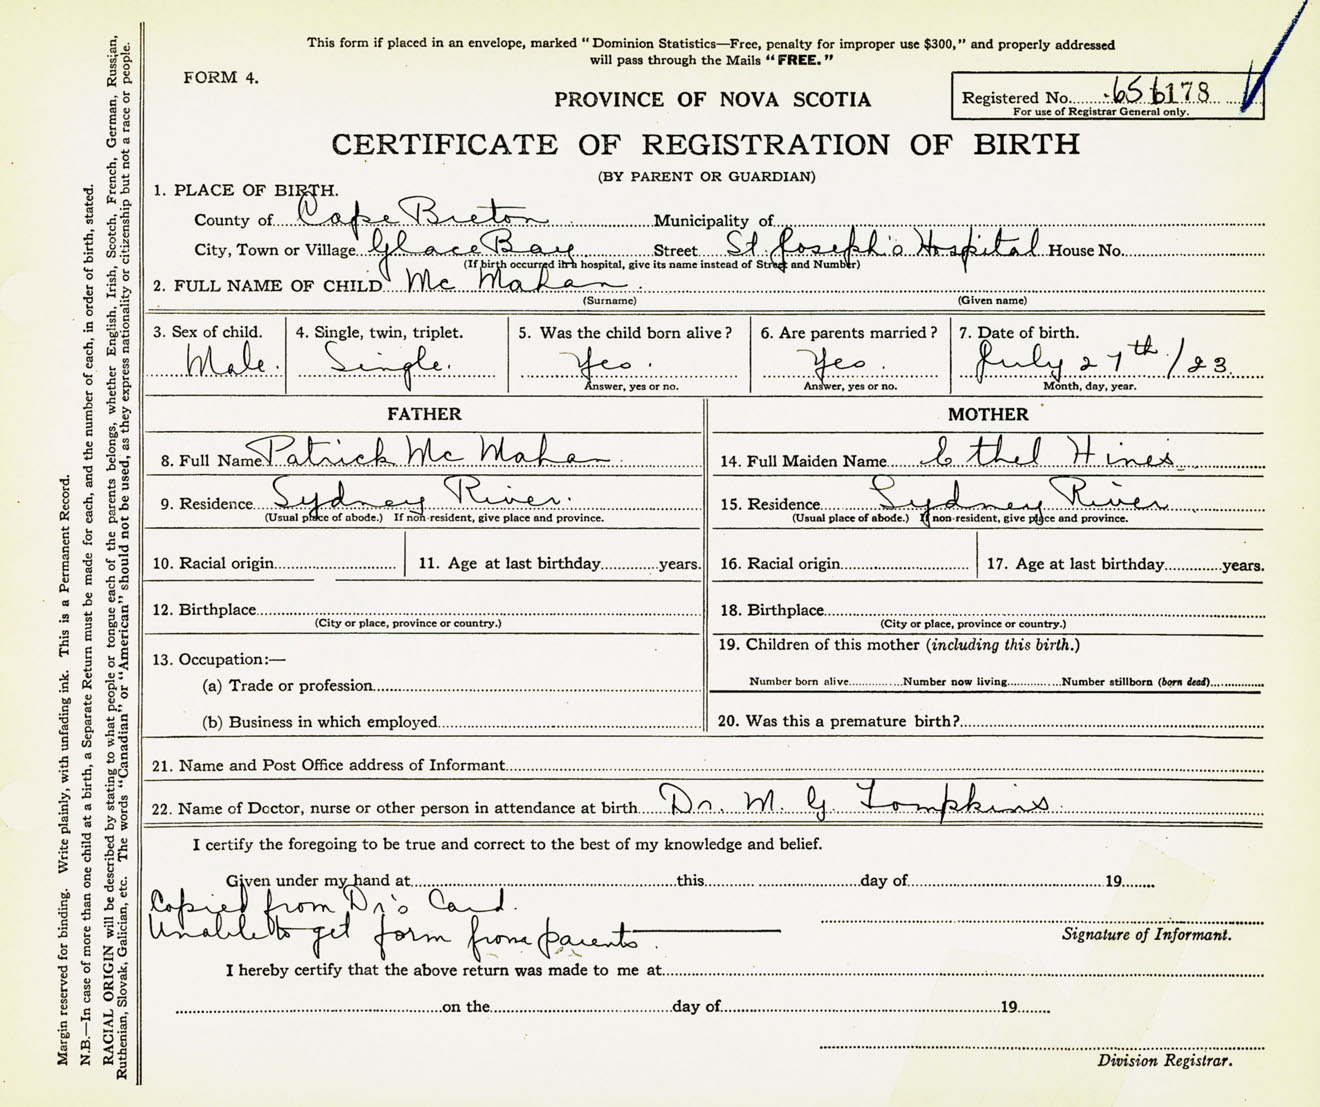 This form if placed in an envelope, marked "Dominion Statistics—Free, penalty for improper use $300," and properly addressed
will pass through the Mails "FREE."
FORM 4.
PROVINCE OF NOVA SCOTIA
Registered No. 656178
For use of Registrar General only.
CERTIFICATE OF REGISTRATION OF BIRTH
(BY PARENT OR GUARDIAN)
1. PLACE OF BIRTH.
County of Cape Breton Municipality of
City, Town or Village Glace Bay Street St. Joseph's Hospital House No.
(If birth occurred in a hospital, give its name instead of Street and Number)
2. FULL NAME OF CHILD Mc Mahan
(Surname) (Given name)
3. Sex of child. 4. Single, twin, triplet. 5. Was the child born alive? 6. Are parents married? 7. Date of birth.
Male. Single. Yes. Yes. July 27th /23.
Answer, yes or no. Answer, yes or no. Month, day, year.
FATHER MOTHER
8. Full Name Patrick Mc Mahan 14. Full Maiden Name Ethel Hines
9. Residence Sydney River. 15. Residence Sydney River
(Usual place of abode.) If non-resident, give place and province. (Usual place of abode.) If non-resident, give place and province.
10. Racial origin 11. Age at last birthday years. 16. Racial origin 17. Age at last birthday years.
12. Birthplace 18. Birthplace
(City or place, province or country.) (City or place, province or country.)
13. Occupation:— 19. Children of this mother (including this birth.)
(a) Trade or profession Number born alive Number now living Number stillborn (born dead)
(b) Business in which employed 20. Was this a premature birth?
21. Name and Post Office address of Informant
22. Name of Doctor, nurse or other person in attendance at birth Dr. M. G. Tompkins
I certify the foregoing to be true and correct to the best of my knowledge and belief.
Given under my hand at this day of 19
Copied from Dr's Card.
Unable to get form from parents.
Signature of Informant.
I hereby certify that the above return was made to me at
on the day of 19
Division Registrar.
Margin reserved for binding. Write plainly, with unfading ink. This is a Permanent Record.
N.B.—In case of more than one child at a birth, a Separate Return must be made for each, and the number of each, in order of birth, stated.
RACIAL ORIGIN will be described by stating to what people or tongue each of the parents belongs, whether English, Irish, Scotch, French, German, Russian,
Ruthenian, Slovak, Galician, etc. The words "Canadian" or "American" should not be used, as they express nationality or citizenship but not a race or people.